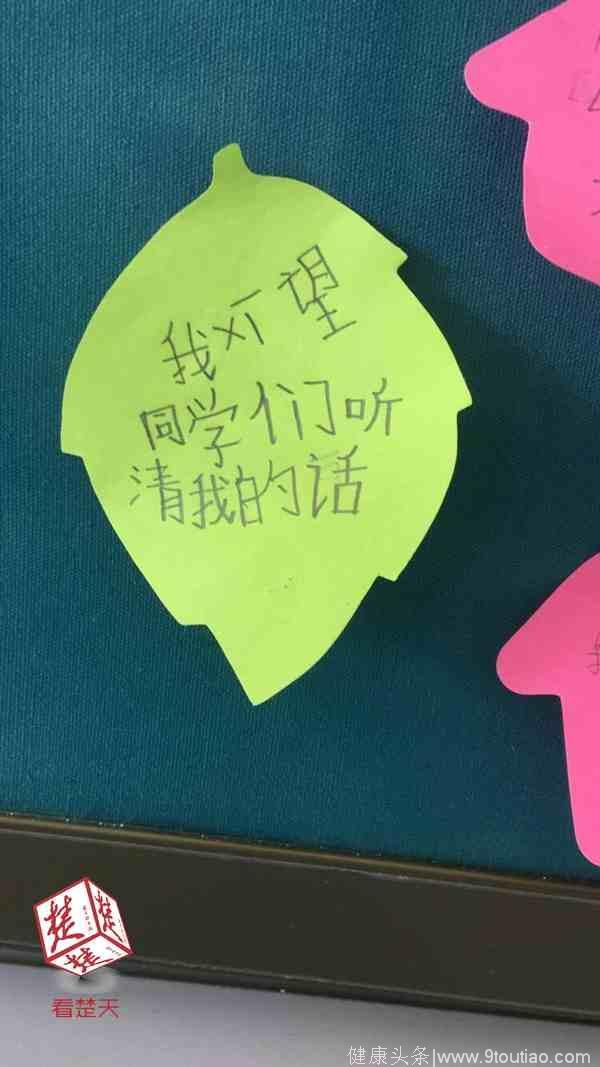 我希望
同学们听
清我的话
楚楚
看楚天
健康头条|www.9toutiao.com